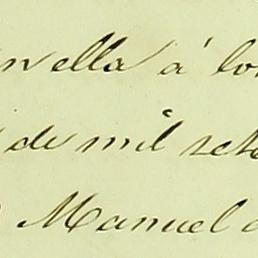 en ella á los
de mil sete
Manuel d